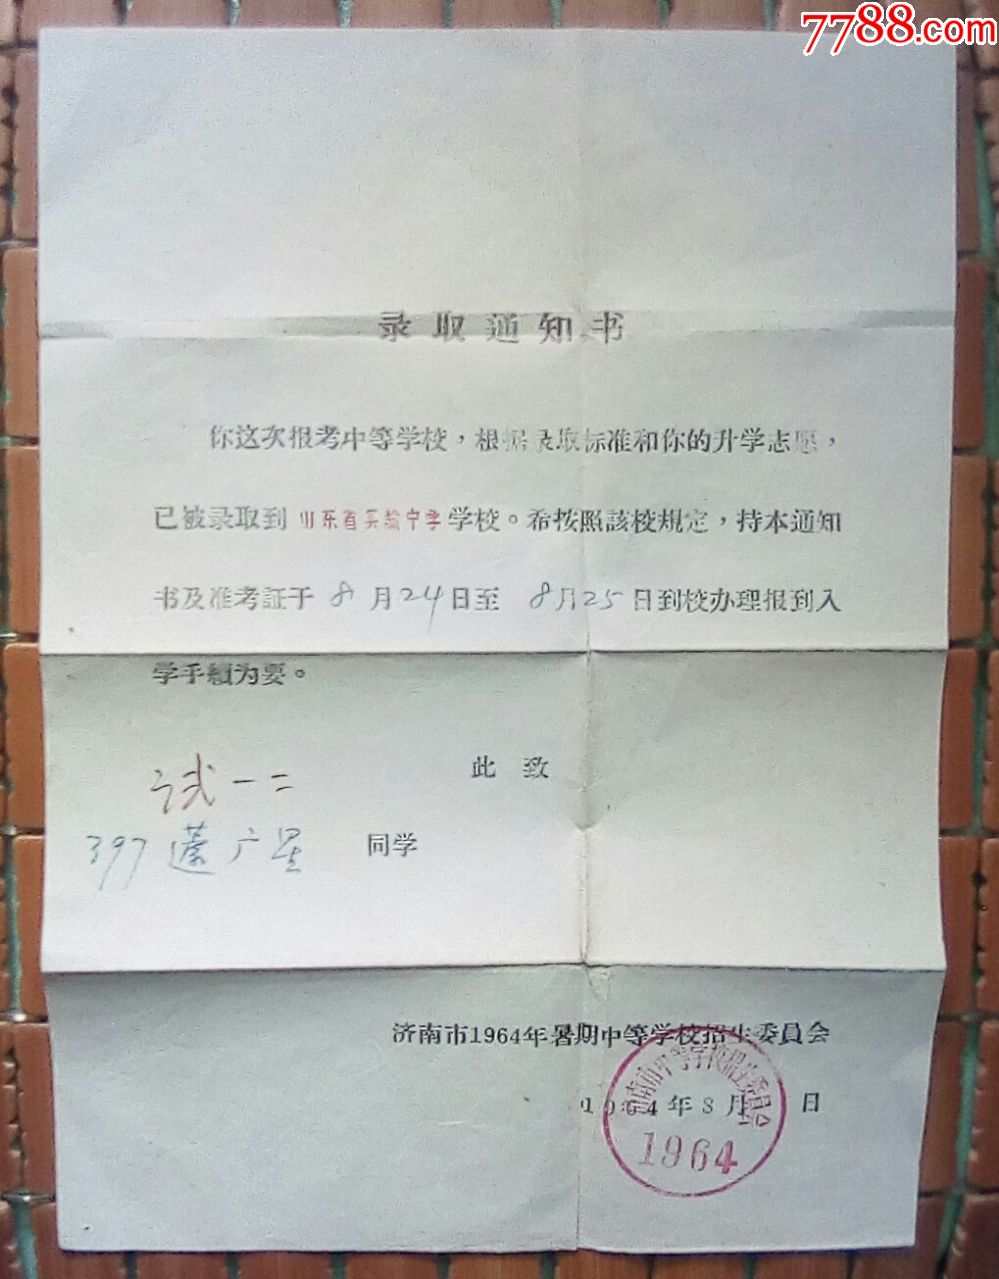 7788.com
录取通知书
你这次报考中等学校，根据录取标准和你的升学志愿，
已被录取到山东省实验中学学校。希按照該校規定，持本通知
书及准考証于 8月24日至 8月25日到校办理报到入
学手續为要。
此致
试一二
397 广星 同学
济南市1964年暑期中等学校招生委員会
1964年8月 日
济南市中等学校招生委員会
1964